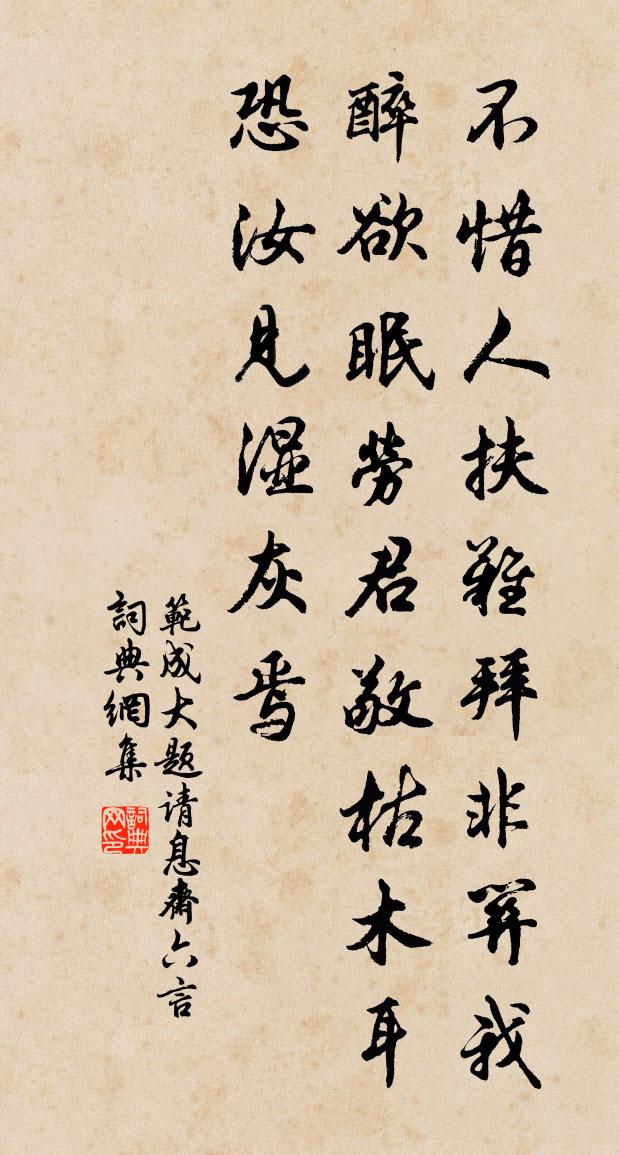 不惜人扶難拜非關我
醉欲眠勞君敬枯木耳
恐汝見湿灰焉
範成大題请息齋六言
詞典網集
詞典网印